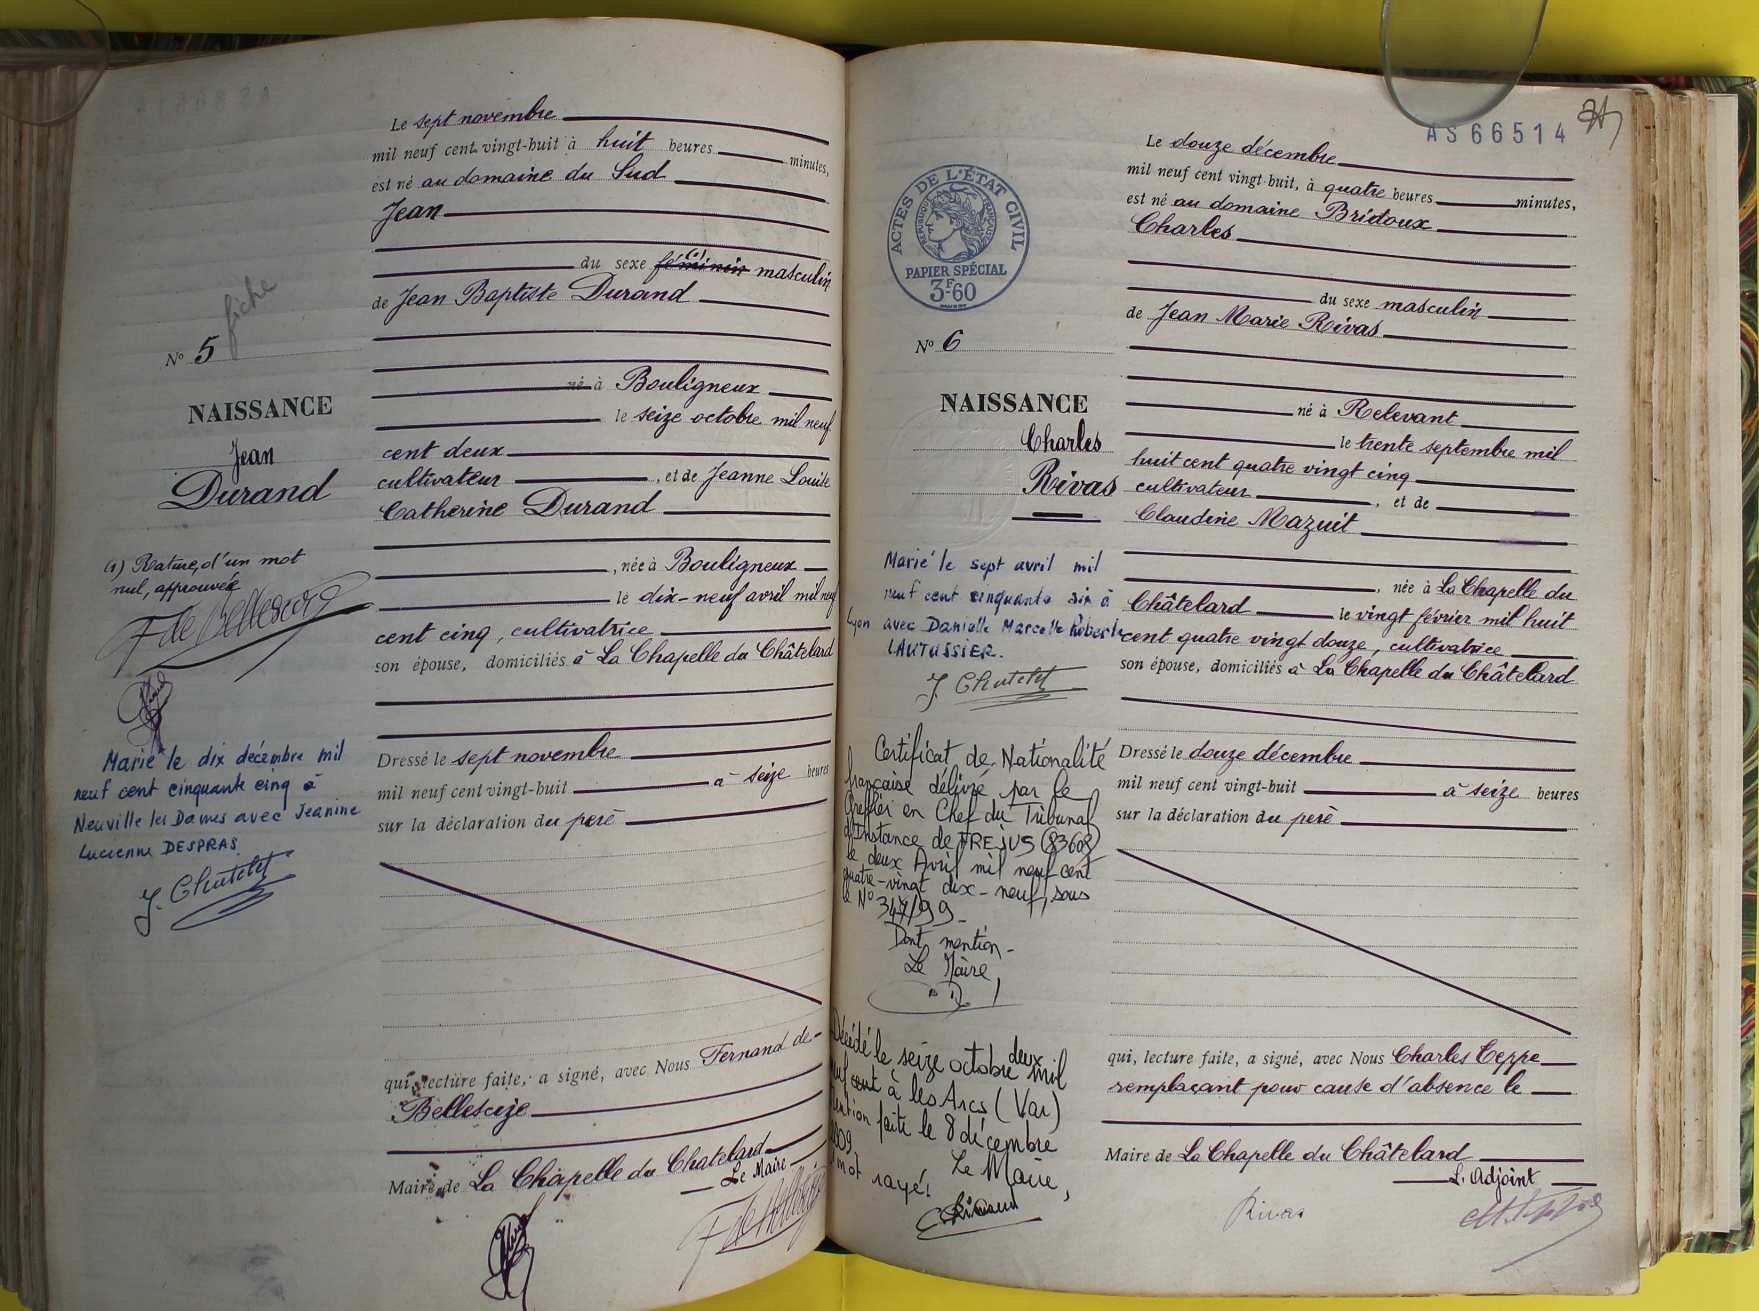 Le sept novembre
mil neuf cent vingt-huit à huit heures minutes,
est né au domaine du Sud
Jean
du sexe féminin (1) masculin
de Jean Baptiste Durand
fiche
N° 5
né à Bouligneux
NAISSANCE
le seize octobre mil neuf
Jean
cent deux
Durand
cultivateur , et de Jeanne Louise
Catherine Durand
(1) Rature, d'un mot
nul, approuvée
F de Bellescize
, née à Bouligneux
le dix-neuf avril mil neuf
cent cinq, cultivatrice
son épouse, domiciliés à La Chapelle du Châtelard
Marié le dix décembre mil
neuf cent cinquante cinq à
Neuville les Dames avec Jeanine
Lucienne DESPRAS.
J. Chutelet
Dressé le sept novembre
mil neuf cent vingt-huit à seize heures
sur la déclaration du père
qui, lecture faite, a signé, avec Nous Fernand de
Bellescize
Maire de La Chapelle du Chatelard
Le Maire
AS66514
Le douze décembre
mil neuf cent vingt-huit, à quatre heures minutes,
est né au domaine Bridoux
Charles
ACTES DE L'ÉTAT CIVIL
PAPIER SPÉCIAL
3F60
du sexe masculin
de Jean Marie Rivas
N° 6
NAISSANCE
Charles
Rivas
né à Relevant
le trente septembre mil
huit cent quatre vingt cinq
cultivateur , et de
Claudine Mazuit
Marié le sept avril mil
neuf cent cinquante six à
Lyon avec Danielle Marcelle Roberte
LAUTUSSIER.
J. Chutelet
, née à La Chapelle du
Châtelard le vingt février mil huit
cent quatre vingt douze, cultivatrice
son épouse, domiciliés à La Chapelle du Châtelard
Certificat de Nationalité
française délivré par le
Greffier en Chef du Tribunal
d'Instance de FREJUS (83608)
le deux Avril mil neuf cent
quatre-vingt dix-neuf, sous
le N° 347/99
Dont mention
Le Maire,
Dressé le douze décembre
mil neuf cent vingt-huit à seize heures
sur la déclaration du père
Décédé le seize octobre deux mil
neuf cent à les Arcs (Var)
mention faite le 8 décembre
2009
mot rayé.
Le Maire,
qui, lecture faite, a signé, avec Nous Charles Teppe
remplaçant pour cause d'absence le
Maire de La Chapelle du Châtelard
L'Adjoint
Rivas